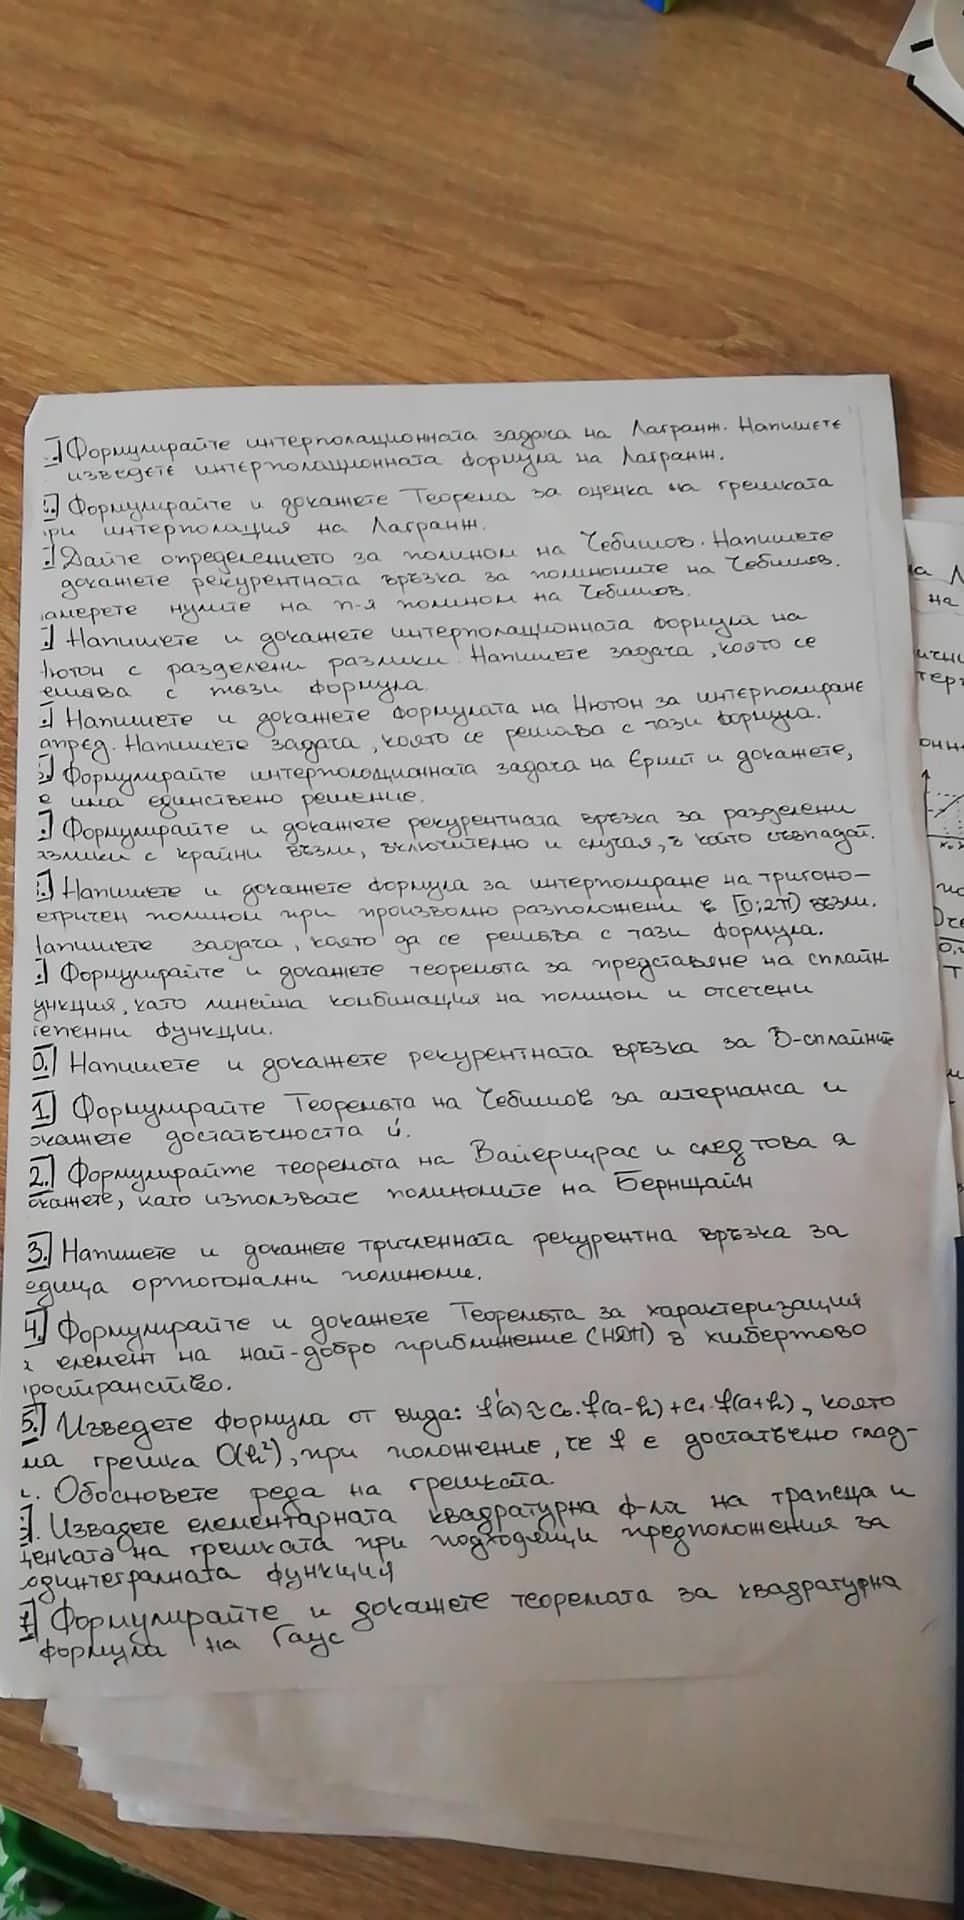 .] Формулирайте интерполационната задача на Лагранж. Напишете
изведете интерполационната формула на Лагранж.
Формулирайте и докажете Теорема за оценка на грешката
ри интерполация на Лагранж.
.] Дайте определението за полином на Чебишов. Напишете
докажете рекурентната връзка за полиномите на Чебишов.
амерете нулите на n-я полином на Чебишов.
.] Напишете и докажете интерполационната формула на
ютон с разделени разлики. Напишете задача, която се
ешава с тази формула.
.] Напишете и докажете формулата на Нютон за интерполиране
апред. Напишете задача, която се решава с тази формула.
Формулирайте интерполационната задача на Ермит и докажете,
е има единствено решение.
.] Формулирайте и докажете рекурентната връзка за разделени
азлики с крайни възли, включително и случая, в който съвпадат.
.] Напишете и докажете формула за интерполиране на тригоно-
етричен полином при произволно разположени в [0;2π) възли.
апишете задача, която да се решава с тази формула.
.] Формулирайте и докажете теоремата за представяне на сплайн
ункция, като линейна комбинация на полином и отсечени
тепенни функции.
0.] Напишете и докажете рекурентната връзка за B-сплайните
1.] Формулирайте Теоремата на Чебишов за алтернанса и
окажете достатъчността ѝ.
2.] Формулирайте теоремата на Вайерщрас и след това я
окажете, като използвате полиномите на Бернщайн
3.] Напишете и докажете тричленната рекурентна връзка за
едица ортогонални полиноми.
4.] Формулирайте и докажете Теоремата за характеризация
елемент на най-добро приближение (НДП) в хилбертово
ространство.
5.] Изведете формула от вида: f'(a) ≈ c₀.f(a-h)+c₁.f(a+h), която
ма грешка O(h²), при положение, че f е достатъчно глад-
Обосновете реда на грешката.
Извадете елементарната квадратурна ф-ла на трапеца и
ценката на грешката при подходящи предположения за
одинтегралната функция
7] Формулирайте и докажете теоремата за квадратурна
формула на Гаус